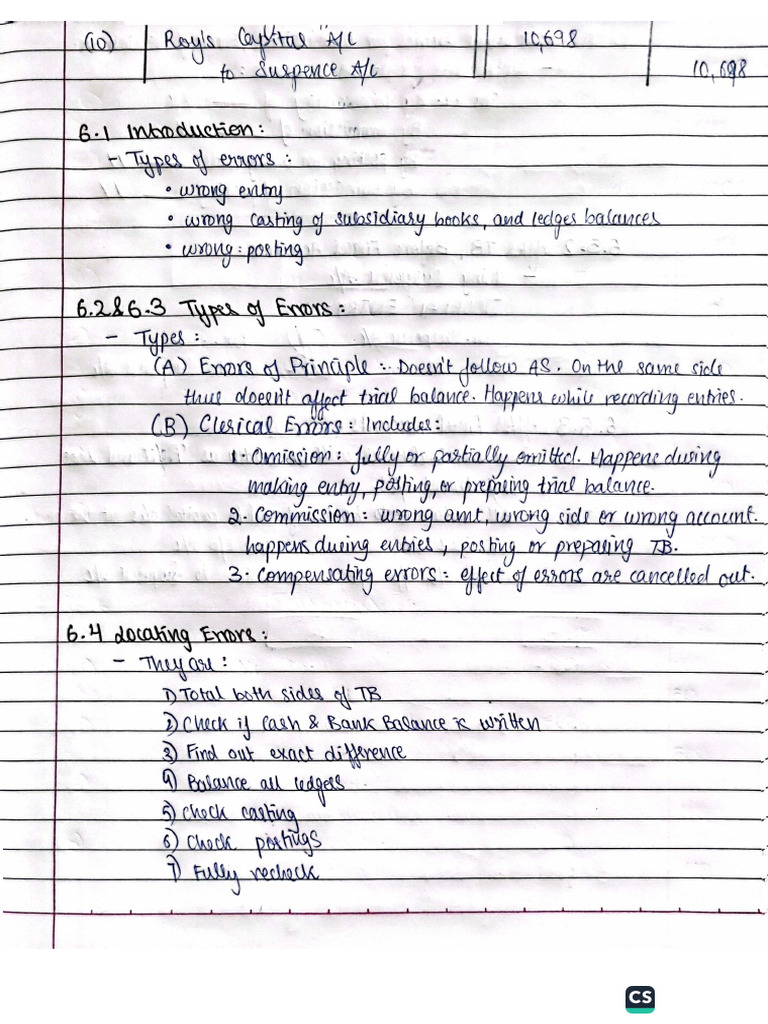 (10) Roy's Capital A/C 10,698
to: Suspence A/C - 10,698
6.1 Introduction:
- Types of errors:
• wrong entry
• wrong casting of subsidiary books, and ledges balances
• wrong: posting
6.2 & 6.3 Types of Errors:
- Types:
(A) Errors of Principle :- Doesn't follow AS. On the same side
thus doesn't affect trial balance. Happens while recording entries.
(B) Clerical Errors: Includes:
1. Omission: fully or partially omitted. Happens during
making entry, posting, or preparing trial balance.
2. Commission: wrong amt, wrong side or wrong account.
happens during entries, posting or preparing TB.
3. Compensating errors: effect of errors are cancelled out.
6.4 Locating Errors:
- They are:
1) Total both sides of TB
2) Check if Cash & Bank Balance is written
3) Find out exact difference
4) Balance all ledgers
5) Check casting
6) Check postings
7) Fully recheck
CS